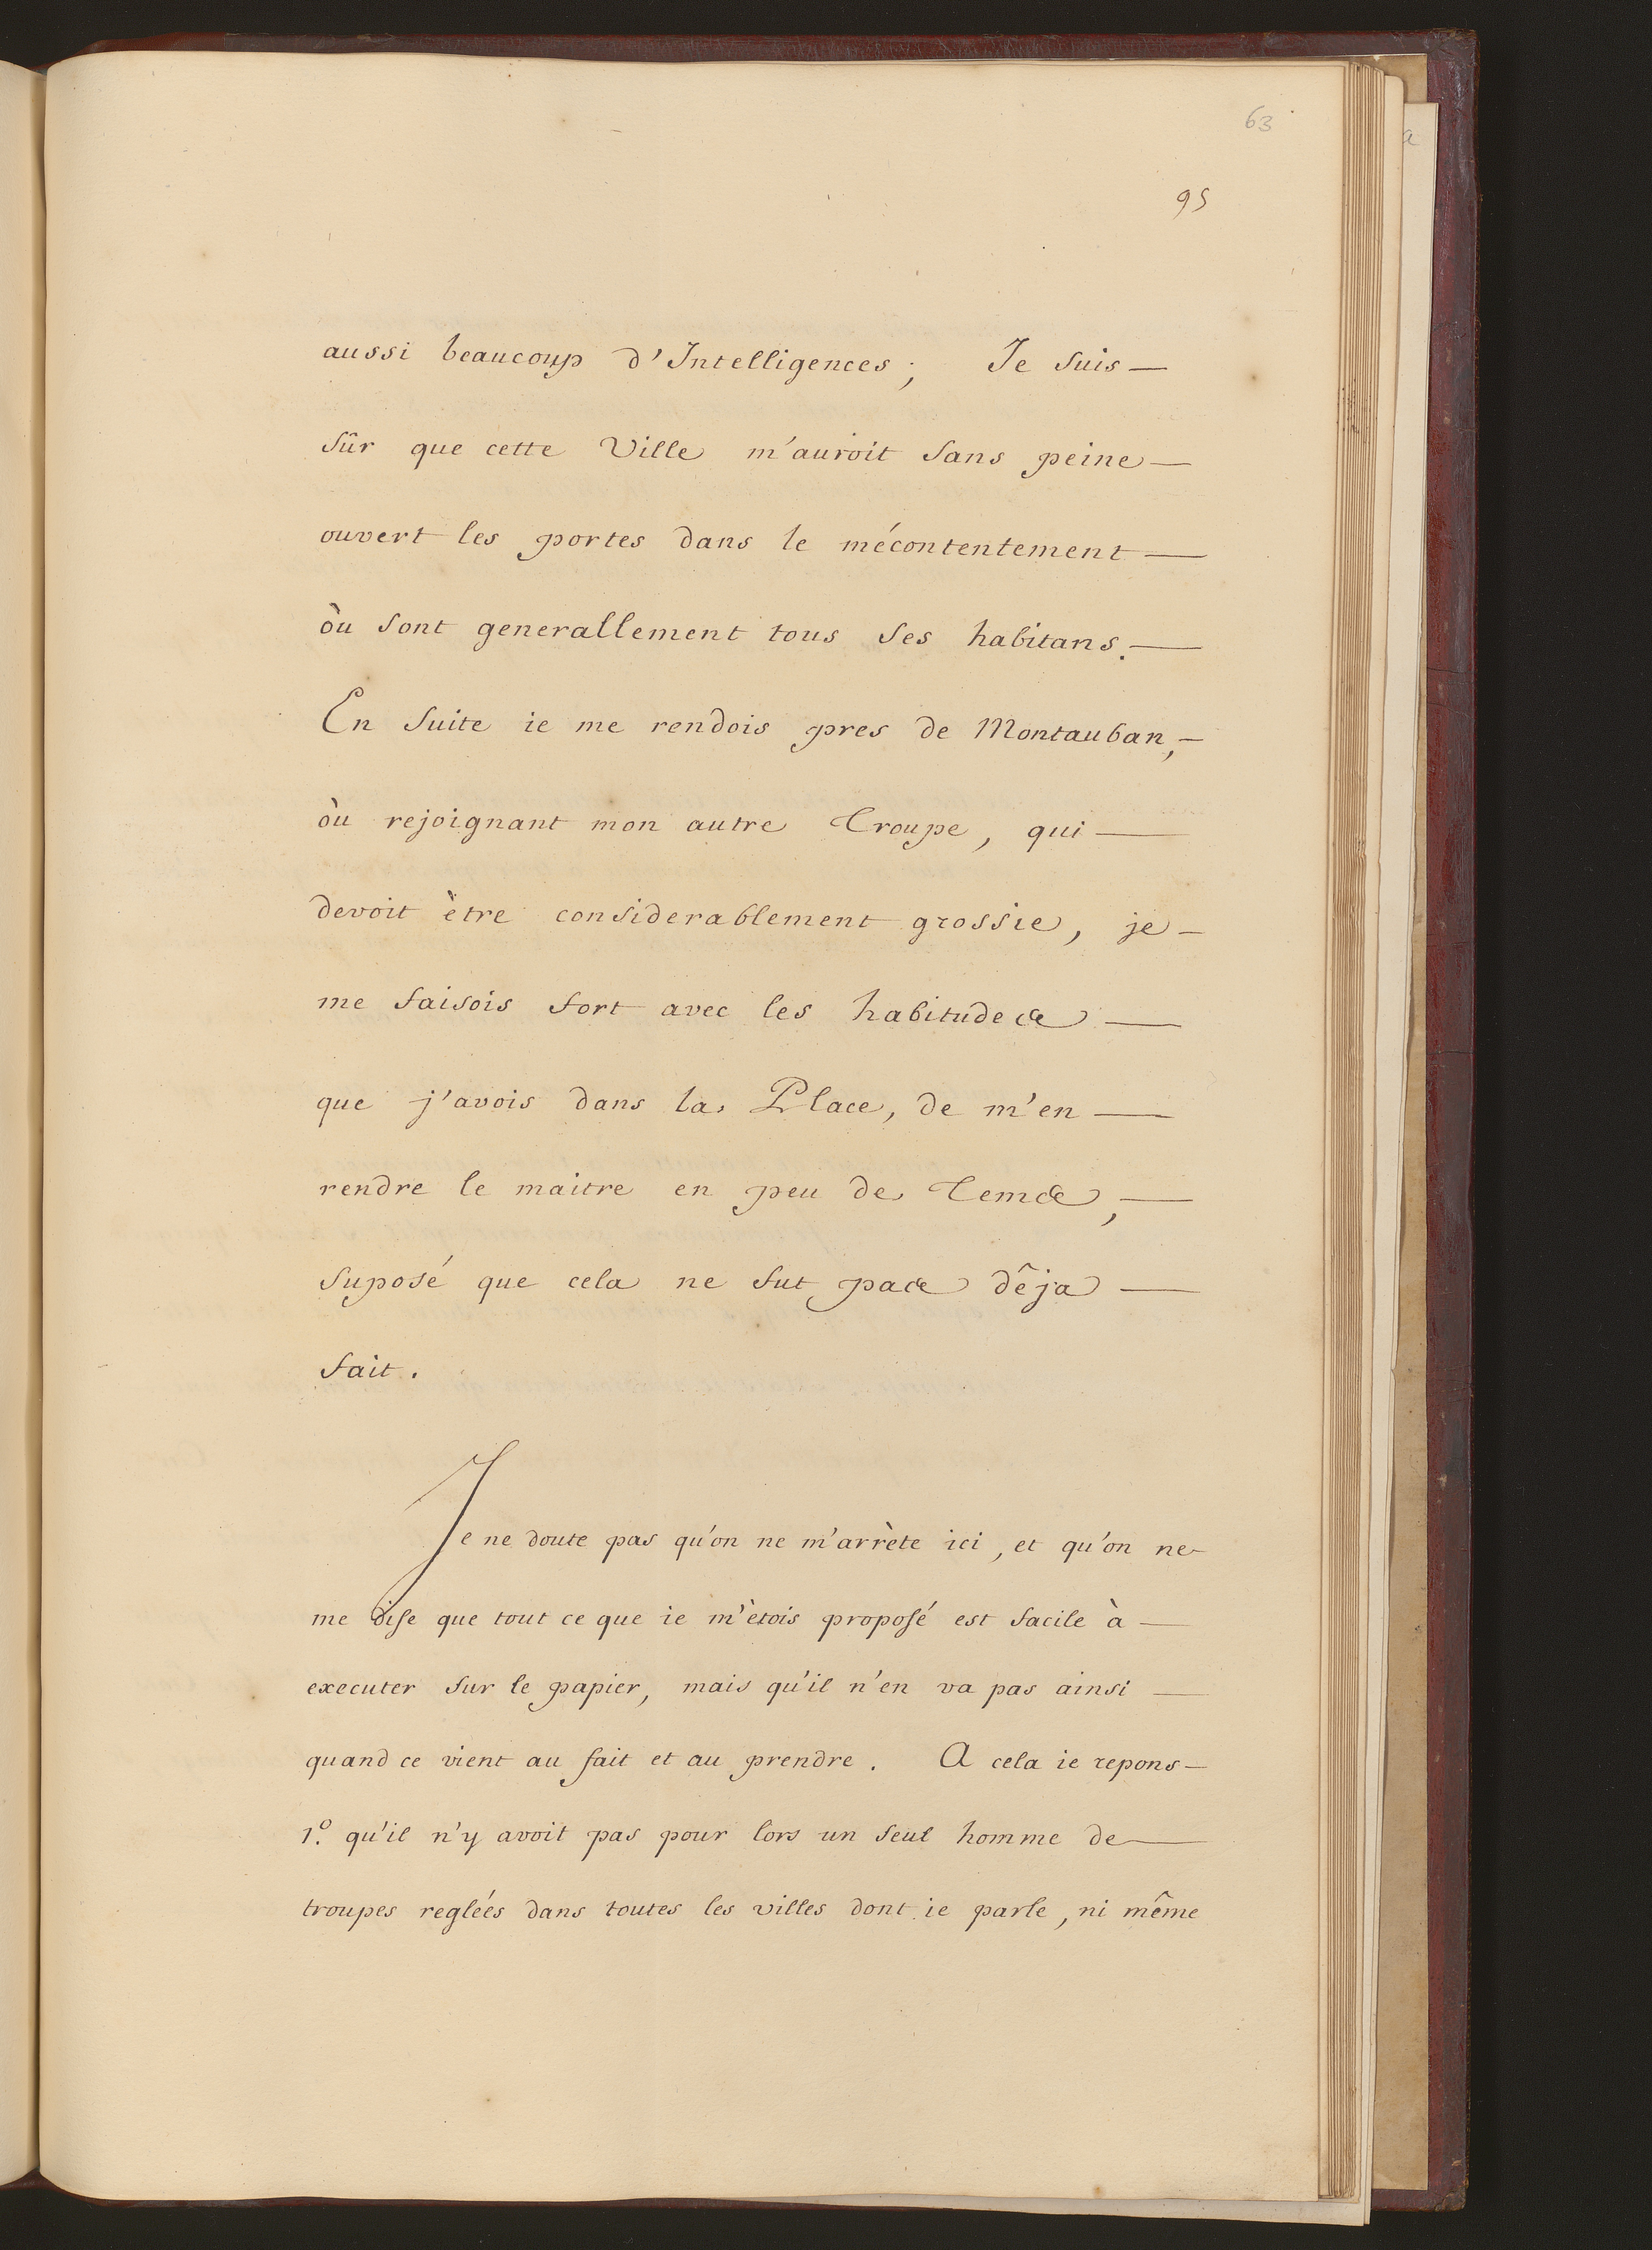 63
95
aussi beaucoup d'Intelligences; Je suis —
sûr que cette Ville m'auroit sans peine —
ouvert les portes dans le mécontentement —
òu sont generallement tous ses habitans. —
En suite ie me rendois pres de Montauban, —
òu rejoignant mon autre Troupe, qui —
devoit ètre considerablement grossie, je —
me faisois fort avec les habitudes —
que j'avois dans la Place, de m'en —
rendre le maitre en peu de Tems, —
suposé que cela ne fut pas dêja —
fait.
Je ne doute pas qu'on ne m'arrète ici, et qu'on ne
me dise que tout ce que ie m'ètois proposé est facile à —
executer sur le papier, mais qu'il n'en va pas ainsi —
quand ce vient au fait et au prendre. A cela ie repons —
1.º qu'il n'y avoit pas pour lors un seul homme de —
troupes regleés dans toutes les villes dont ie parle, ni même